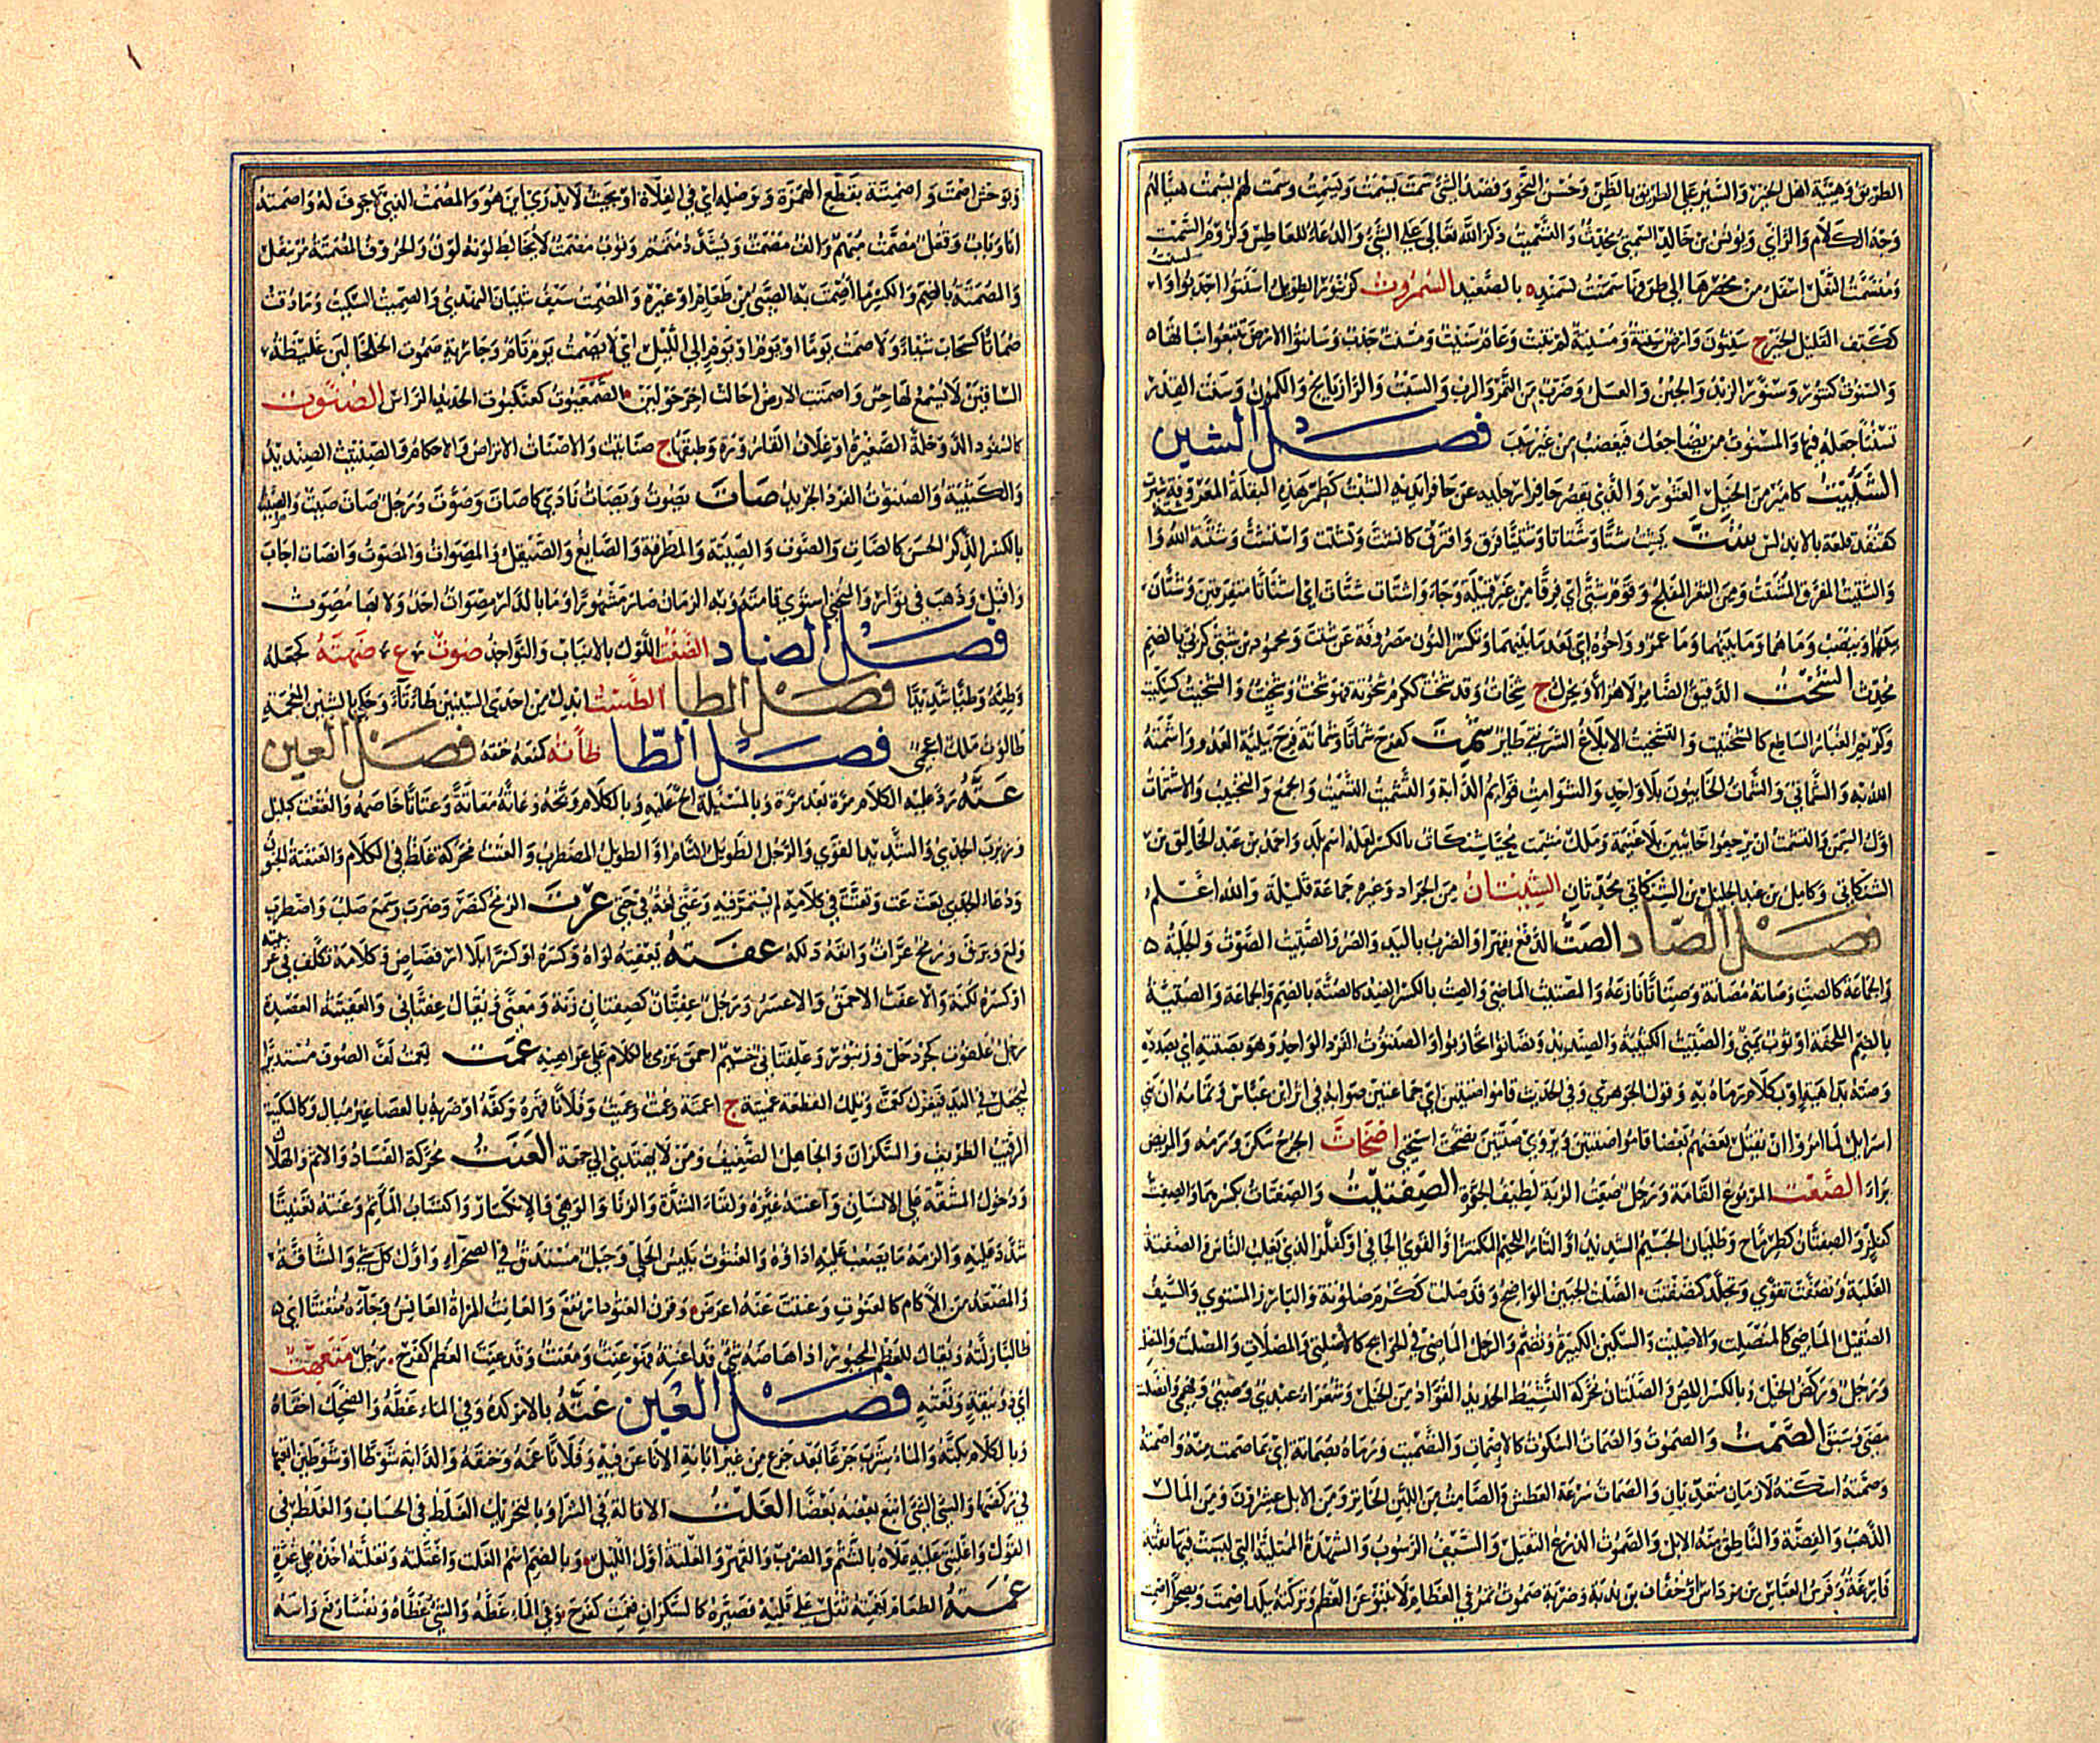 الطريق وهيئة اهل الخير والسير على الطريق بالظن وحسن النحو وقصد الشئ سمت يسمت ويسمت وسمت لهم يسمت هيأ لهم
وجه الكلام والراى ويونس بن خالد السمتي محدث والتسميت ذكر الله تعالى على الشئ والدعاء للعاطس ولزوم السمت
ومسمت النعل اسفل من مخصرها الى طرفها سمنت لسمند بالصغد السمروت كزنبور الطويل اسنتوا اجدبوا و
ككتف القليل الخير ج سنتون وارض سنتة ومسنتة لم تنبت وعام سنيت ومسنت جدب وسانتوا الارض تتبعوا نباتها
والسنوت كتنور وسنور الزبد والجبن والعسل وضرب من التمر والرب والسبت والرازيانج والكمون وسنت القدر
تسنيتا جعله فيها والمسنوت من يصاحبك فيغضب من غير سبب فصل الشين
الشئيت كامير من الخيل العثور والذى يقصر حافرا رجليه عن حافرى يديه الشبت كطمر هذه البقلة المعروفة
كقنفذ قلعة بالاندلس شت يشت شتا وشتاتا وشتيتا فرق وافترق كانشت وتشتت واستشت وشتته الله و
والشتيت المفرق المشتت ومن الثغر المفلج وقوم شتى اى فرقا من غير قبيلة وجاءوا اشتات شتات اى اشتاتا متفرقين وشتان
بينهما وينصب وما هما وما بينهما وما عمرو واخوه اى بعد ما بينهما وتكسر النون مصروفة عن شتت ومحمود بن شتى كربى بالضم
محدث الشخت الدقيق الضامر لا هزالا ويحرك ج شخات وقد شخت ككرم شخوتة فهو شخت وشخيت والشخيت كسكيت
وكونيم الغبار الساطع كالشختيت والتشخيت الابلاغ شمت كفرح شماتا وشماتة فرح ببلية العدو واشمته
الله به والشماتى والشمات الخائبون بلا واحد والشوامت قوائم الدابة والتشميت التسميت والجمع والتخييب والاشتمات
اول السمن والتشمت ان يرجعوا خائبين بلا غنيمة وملك مشمت محيا شنكات بالكسر لعله اسم بلد واحمد بن عبد الخالق بن
الشنكاتى وكامل بن عبد الجليل بن الشنكاتى محدثان الشيتان من الجراد وغيره جماعة قليلة والله اعلم
فصل الصاد الصت الدفع بقهر او الضرب باليد والصر والصتيت الصوت والجلبة
والجماعة كالصت وصاته مصاتة وصتاتا نازعه والمصتيت الماضى والصت بالكسر الضد كالصتة بالضم والجماعة والصتية
بالضم الملحفة او ثوب يمنى والصتيت الكتيبة والصنديد وتصاتوا تحاربوا والصنتوت الفرد الواحد وهو بصتته اى بصدده
وصته بداهية او بكلام رماه به وقول الجوهرى وفى الحديث قاموا صتيتين اى جماعتين صوابه فى اثر ابن عباس وتمامه ان بنى
اسرايل لما امروا ان يقتل بعضهم بعضا قاموا صتيتين ويروى صتين اصحات الجرح سكن ورمه والمريض
برا الصعت المربوع القامة ورجل صعت الربة لطيف الجفرة الصفتيت والصفتات بكسرهما والصفت
كفلز والصفتان كطرماح وصليان الجسيم الشديد او التار اللحيم المكتنز او القوى الجافى او كفلز الذى يغلب الناس والصفتة
الغلبة وتصفت تقوى وتجلد كتصفت الصلت الجبين الواضح وقد صلت ككرم صلوتة والبارز المستوى والسيف
الصقيل الماضى كالمنصلت والاصليت والسكين الكبيرة ويضم والرجل الماضى فى الحوائج كالاصلتى والمصلات والمصلت والمنصلت
ورجل وركض الخيل وبالكسر اللص والصلتان محركة النشيط الحديد الفؤاد من الخيل وشعراء عبدى وضبى وفهمى وانصلت
مضى وسبق الصمت والصموت والصمات السكوت كالاصمات والتصميت ورماه بصماته اى بما صمت منه واصمته
وصمته اسكته لازمان متعديان والصمات سرعة العطش والصامت من اللبن الخاثر ومن الابل عشرون ومن المال
الذهب والفضة والناطق منه الابل والصموت الدرع الثقيل والسيف الرسوب والشهدة الممتلئة التى ليست فيها ثقبة
فارغة وفرس العباس بن مرداس او خفاف بن ندبة وضربة صموت تمر فى العظام لا تنبو عن العظم وتركته ببلد اصمت وبصحراء اصمت
وبوحش اصمت واصمتة بقطع الهمزة ووصله اى فى الفلاة او بحيث لا يدرى اين هو والمصمت الذى لا جوف له واصمته
انا وباب وقفل مصمت مبهم والف مصمت ويشدد متمم وثوب مصمت لا يخالط لونه لون والحروف المصمتة مر بنفل
والصمتة بالضم والكسر ما اصمت به الصبى من طعام او غيره والمصمت سيف شيبان النهدى والصميت السكيت وما ذقت
صماتا كسحاب شيا ولا صمت يوما او يوم او يوم الى الليل اى لا يصمت يوم تام وجارية صموت الخلخالين غليظة
الساقين لا يسمع لها حس واصمتت الارض احالت آخر حولين الصمعيوت كعنكبوت الحديد الراس الصنوت
كالسفود الدوخلة الصغيرة او غلاف القارورة وطبقها ج صنانيت والاصنات الاتراص والاحكام والصنتيت الصنديد
والكتيبة والصنتوت الفرد الحريد صات يصوت ويصات نادى كاصات وصوت ورجل صات صيت والصيت
بالكسر الذكر الحسن كالصات والصوت والصيتة والمطرقة والصايغ والصيقل والمصوات المصوت وانصات اجاب
واقبل وذهب فى توار والمنحنى استوى قامته وبه الزمان صار مشهورا وما بالدار مصوات احد ولا بها مصوت
فصل الضاد الضغت اللوك بالانياب والنواجذ ضوت ع ضهته كجعله
وطئه وطئا شديدا فصل الطا الطست ابدل من احدى السينين تاء وحكى بالشين المعجمة
طالوت ملك اعجمى فصل الظا ظأته كمنعه خنقه فصل العين
عته رد عليه الكلام مرة بعد مرة وبالمسئلة الح عليه وبالكلام وبخه وعاته معاتة وعتاتا خاصمه والعتعت كبلبل
وربرب الجدى والشديد القوى والرجل الطويل التام او الطويل المضطرب والعتت محركة غلظ فى الكلام والعتعتة الجنون
ودعاء الجدى بعت عت وتعتت فى كلامه لم يستمر فيه وعتى لغة فى حتى عرت الرمح كنصر وضرب وسمع صلب واضطرب
ولمع وبرق ورمح عرات وانفه دلكه عفته يعفته لواه وكسره او كسرا بلا ارفضاض وكلامه تكلف فى عربيته
او كسره لكنة والاعفت الاحمق والاعسر ورجل عفتان كصفتان زنة ومعنى ويقال عفتانى والعفيتة العصيدة
رجل علفوت كجردحل وزنبور وعلفتانى جسيم احمق يرمى بالكلام على عواهنه عمت يعمت لف الصوف مستديرا
ليجعل فى اليد فيغزل كعمت وتلك القطعة عميتة ج اعمتة وعمت وعميت وفلانا قهره وكفه او ضربه بالعصا غير مبال وكالسكيت
الرقيب الظريف والسكران والجاهل الضعيف ومن لا يهتدى الى جهة العنت محركة الفساد والاثم والهلاك
ودخول المشقة على الانسان واعنته غيره ولقاء الشدة والزنا والوهى والانكسار واكتساب المأثم وعنته تعنيتا
شدد عليه والزمه ما يصعب عليه اداؤه والعنتوت يبيس الخلى وجبل مستدق فى الصحراء واول كل شئ والشاقة
المصعد من الآكام كالعنوت وعنتت عنه اعرض وقرن العتود ارتفع والعانت المراة العانس وجاءه متعنتا اى
طالبا زلته ويقال للعظم المجبور اذا هاضه شئ قد اعنته فهو عنت ومعنت وقد عنت العظم كفرح رجل متعهت
اى ذو نيقة ولغته فصل الغين غته بالامر كده وفى الماء غطه والضحك اخفاه
وبالكلام بكته والماء شرب جرعا بعد جرع من غير ابانة الاناء عن فيه وفلانا غمه وخنقه والدابة شوطا او شوطين اتعبها
فى ركضها والشئ الشئ اتبع بعضه بعضا الغلت الاقالة فى الشرا وبالتحريك الغلط فى الحساب والغلط فى
القول واغلنتى عليه علاه بالشتم والضرب والقهر والغلتة اول الليل وبالضم اسم الغلت واغتلته وتغلته اخذه على غرة
غمته الطعام يغمته ثقل على قلبه فصيره كالسكران فغمت كفرح وفى الماء غطه والشئ غطاه ونفسا رفع راسه